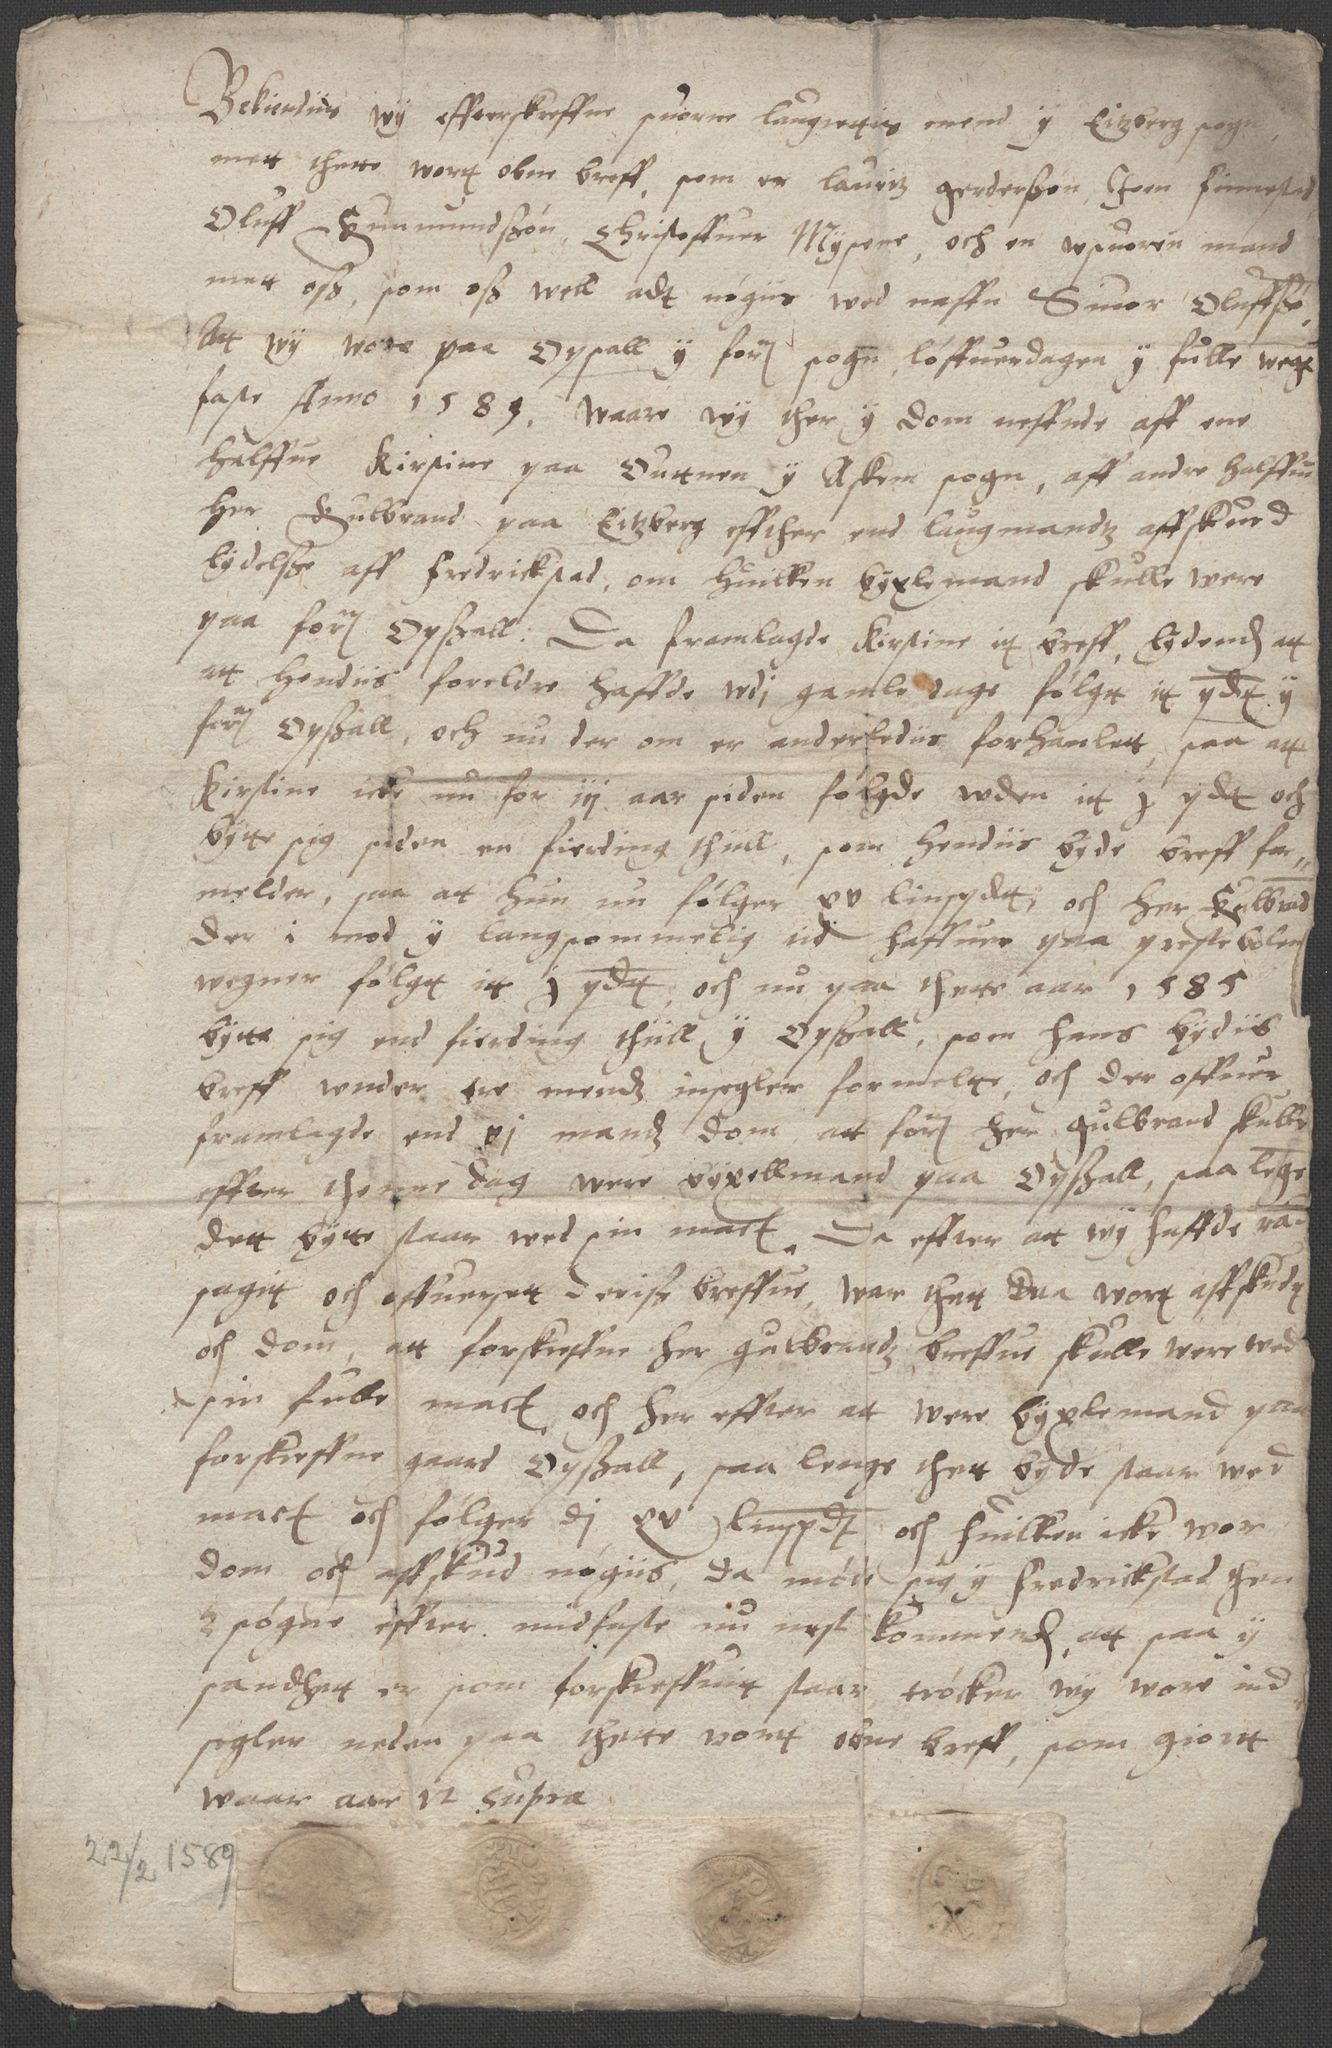 Bekiendiis wy effterskreffne suorne laugrettis mend y Eitzberg sogn,
mett thette wort obne breff, som er lauritz gerderßon, Joen finnestad,
Oluff Gunmundßøn, Christoffuer Mysene, och en wsuoren mand
mett oß, som oß well adt nøgiis wed naffn Siuor Oluffßø,
Att wy wore paa Opsall y for: sogn løffuerdagen y fulle wege
faste Anno 1589, waare wy ther y dom neffnde aff ene
halffue Kirstine paa Outnen y Askem sogn, aff andre halffue
Her Gulbrand paa Eitzberg effther end laugmandz affskued
lydelße aff fredrickstad, om huilken byxlemand skulle were
paa for: Opßall. Da framlagde Kirstine it breff, lydend att
att hendiis foreldre haffde wdj gamle dage følgt it pdt y
for: Opßall, och nu der om er anderlediis forhanlett, saa att
Kirstine icke nu for iij aar siden følgde wden it j pdt och
bytte sig siden en fierding thiill, som hendiis byde breff for„
melder, saa att hun nu følger xv linspdtt, och her Gulbrand
der i mod y langsommelig tid haffuer paa prestebolens
wegner følgt it j pdt, och nu paa thette aar 1585
bytte sig end fierding thiill y Opßall, som hans bydiis
breff wnder tre mendz insegler formelte, och der offuer
framlagde end vj mandz dom att for: her gulbrand skulle
effter thenne dag were byxellmand paa Opßall, saa lenge
dett bytte staar wed sin mact. Da effter att wy haffde ran„
sagit och offuersett deriß breffue, war thett daa wort affskudt
och dom, att forskreffne her gulbrandz breffue skulle were wed
sin fulle mact, och her effter att were byxlemand paa
forskreffne gaard Opßall, saa lenge thett byde staar wed
mact och følger dj xv linspdt och huilken icke wor
dom och affskud nøgiis, da møde sig y fredrickstad then
2 søgne effter midfaste nu nest kommend, att saa y
sandhett er som forskreffuitt staar trøcker wy wore ind
segler neden paa thette wort obne breff, som giortt
waar aar vt supra
22/2 1589